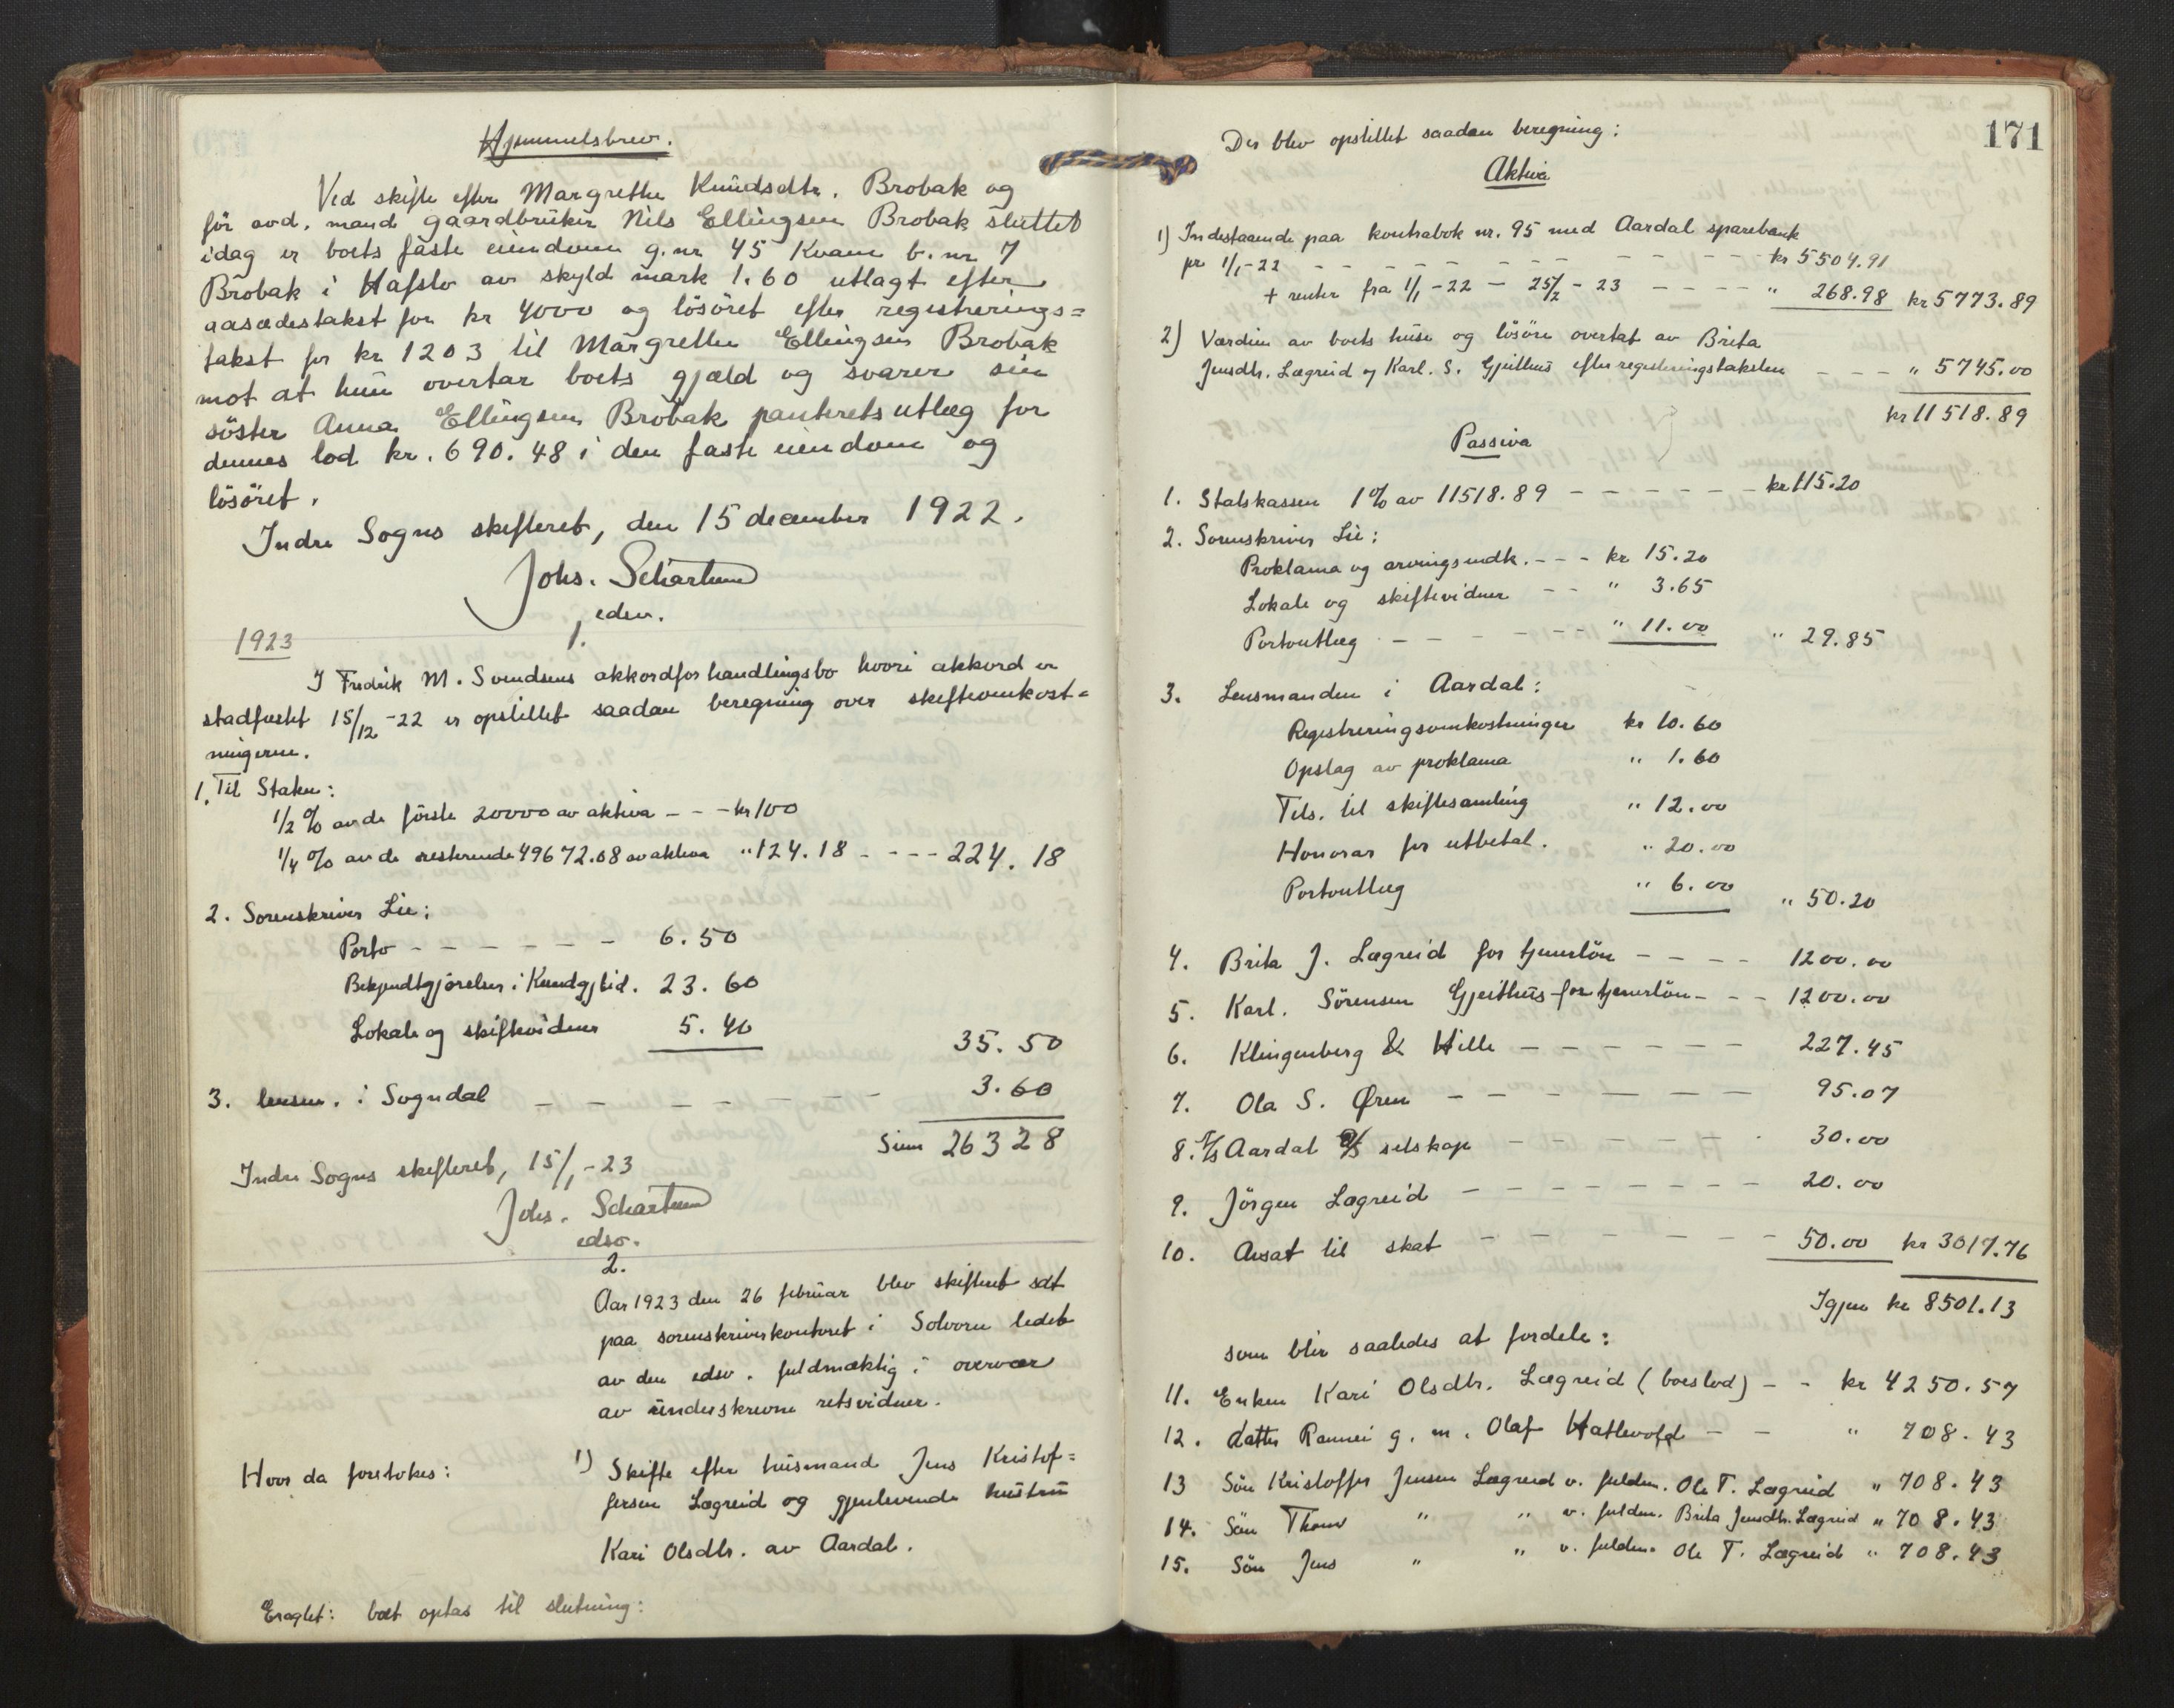 Hjemmelsbrev.
Ved skifte efter Margrethe Knudsdtr. Brobak og
för avd. mand gaardbruker Nils Ellingsen Brobak sluttet
idag er boets faste eiendom g.nr 45 Kvam b.nr 7
Brobak i Hafslo av skyld mark 1.60 utlagt efter
aasædestakst for kr 4000 og lösöret efter registrerings=
takst for kr 1203 til Margrethe Ellingsen Brobak
mot at hun overtar boets gjæld og svarer sin
söster Anna Ellingsen Brobak panterets utlæg for
dennes lod kr. 690.48 i den faste eiendom og
lösöret.
Indre Sogns skifteret, den 15 december 1922.
Johs. Schartum
edsv.
1923
1.
I Fredrik M. Svendsens akkordforhandlingsbo hvori akkord er
stadfæstet 15/12-22 er opstillet saadan beregning over skifteomkost=
ningerne.
1. Til Staten:
1/2 % av de förste 20000 av aktiva - - - kr 100
1/4 % av de resterende 49672.08 av aktiva " 124.18 - - - - 224.18
2. Sorenskriver Lie:
Porto - - - - - - 6.50
Bekjendtgjörelser i Kundgj.tid. 23.60
Lokale og skiftevidner 5.40 35.50
3. lensm. i Sogndal - - - - - - 3.60
Sum 263 28
Indre Sogns skifteret, 15/1-23
Johs. Schartum
edsv.
2.
Aar 1923 den 26 februar blev skifteret sat
paa sorenskriverkontoret i Solvorn ledet
av den edsv. fuldmæktig i overvær
av underskrevne retsvidner.
Hvor da foretokes: 1) Skifte efter husmand Jens Kristof=
fersen Lægreid og gjenlevende hustru
Kari Olsdtr. av Aardal.
Eragtet: boet optas til slutning:
171
Der blev opstillet saadan beregning:
Aktiva
1) Indestaaende paa kontrabok nr. 95 med Aardal sparebank
pr 1/1-22 - - - - - - - - - - kr 5504.91
+ renter fra 1/1-22 - 25/2-23 - - - - " 268.98 kr 5773.89
2) Værdien av boets huse og lösöre overtat av Brita
Jensdtr. Lægreid og Karl. S. Gjeithus efter registreringstaksten - - - " 5745.00
kr 11518.89
Passiva
1. Statskassen 1% av 11518.89 - - - - - - kr 115.20
2. Sorenskriver Lie:
Proklama og arvingsindk. - - - kr 15.20
Lokale og skiftevidner - - " 3.65
Portoutlæg - - - - - - - " 11.00 " 29.85
3. Lensmanden i Aardal:
Registreringsomkostninger kr 10.60
Opslag av proklama " 1.60
Tils. til skiftesamling " 12.00
Honorar for utbetal. " 20.00
Portoutlæg " 6.00 " 50.20
4. Brita J. Lægreid for tjenerlön - - - - 1200.00
5. Karl. Sörensen Gjeithus for tjenerlön - - - 1200.00
6. Klingenberg & Hille - - - - - - 227.45
7. Ola S. Øren - - - - - - - 95.07
8. Aardal selskap - - - - - - 30.00
9. Jörgen Lægreid - - - - - - - - 20.00
10. Avsat til skat - - - - - - - 50.00 kr 3017.76
Igjen kr 8501.13
som blir saaledes at fordele:
11. Enken Kari Olsdtr. Lægreid (boeslod) - - kr 4250.57
12. datter Rannei g. m. Olaf Hatlevold - - " 708.43
13 Sön Kristoffer Jensen Lægreid v. fuldm. Ole T. Lægreid " 708.43
14. Sön Thomas " " v. fuldm. Brita Jensdtr. Lægreid " 708.43
15. Sön Jens " " v. fuldm. Ole T. Lægreid " 708.43